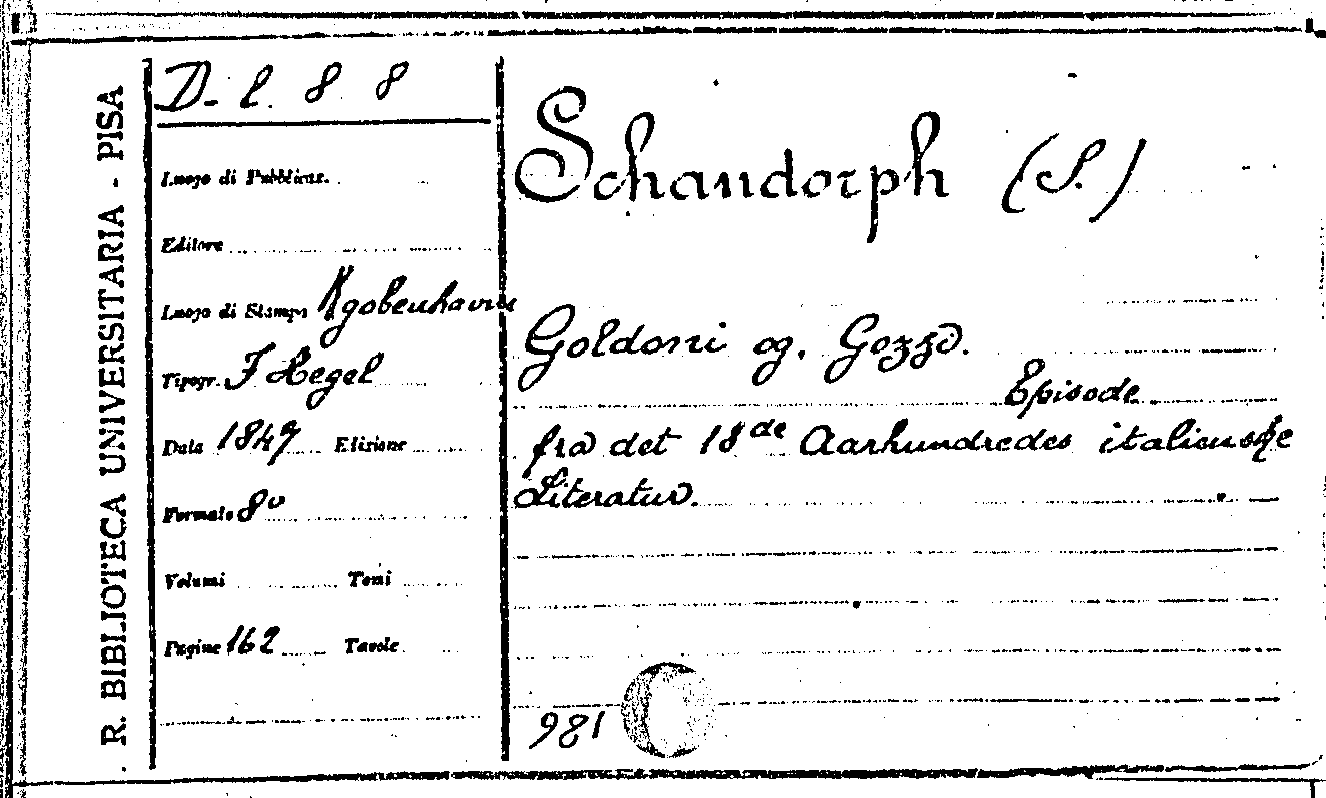 R. BIBLIOTECA UNIVERSITARIA - PISA
D. l. 8 8
Luogo di Pubblicaz.
Editore
Luogo di Stampa Kgobenhavn
Tipogr. F Hegel
Data 1849 Edizione
Formato 8°
Volumi Tomi
Pagine 162 Tavole
Schandorph (S.)
Goldoni og. Gozzo.
Episode
fra det 18de Aarhundredes italienske
Literatur.
981